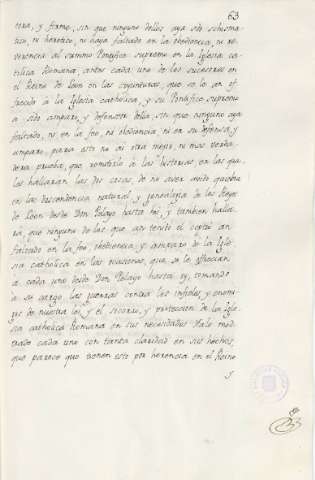 63
tera, y firme, sin que ninguno dellos aya sido schisma-
tico, ni heretico, ni haya faltado en la obediencia, ni re-
verencia al summo Pontifice supremo en la Iglesia ca-
tolica Romana, antes cada uno de los sucesores en
el Reino de Leon en las coyunturas, que se le an of
frecido à la Iglesia catholica, y su Pontifice supremo
a sido amparo, y defensor della, sin que ninguno aya
faltado, ni en la fee, ni obediencia, ni en su defensa, y
amparo, para esto no ai otra mejor, ni mas verda-
dera prueba, que remitirlo à las historias en las qua
les hallaran las dos cosas, de no aver avido quiebra
en la descendencia natural, y genealogia de los Reyes
de Leon desde Don Pelayo hasta hoi, y tambien halla-
rà, que ninguno de los que an tenido el ceptro an
faltado en la fee, obediencia, y amparo de la Igle-
sia catholica en las ocasiones, que se le ofrecian
a cada uno desde Don Pelayo hasta oy, tomando
à su cargo las guerras contra los infieles, y enemi-
gos de nuestra lei, y el socorro, y proteccion de la Igle-
sia catholica Romana en sus necesidades. Halo mos-
trado cada uno con tanta claridad en sus hechos,
que parece que vienen esto por herencia en el Reino
y